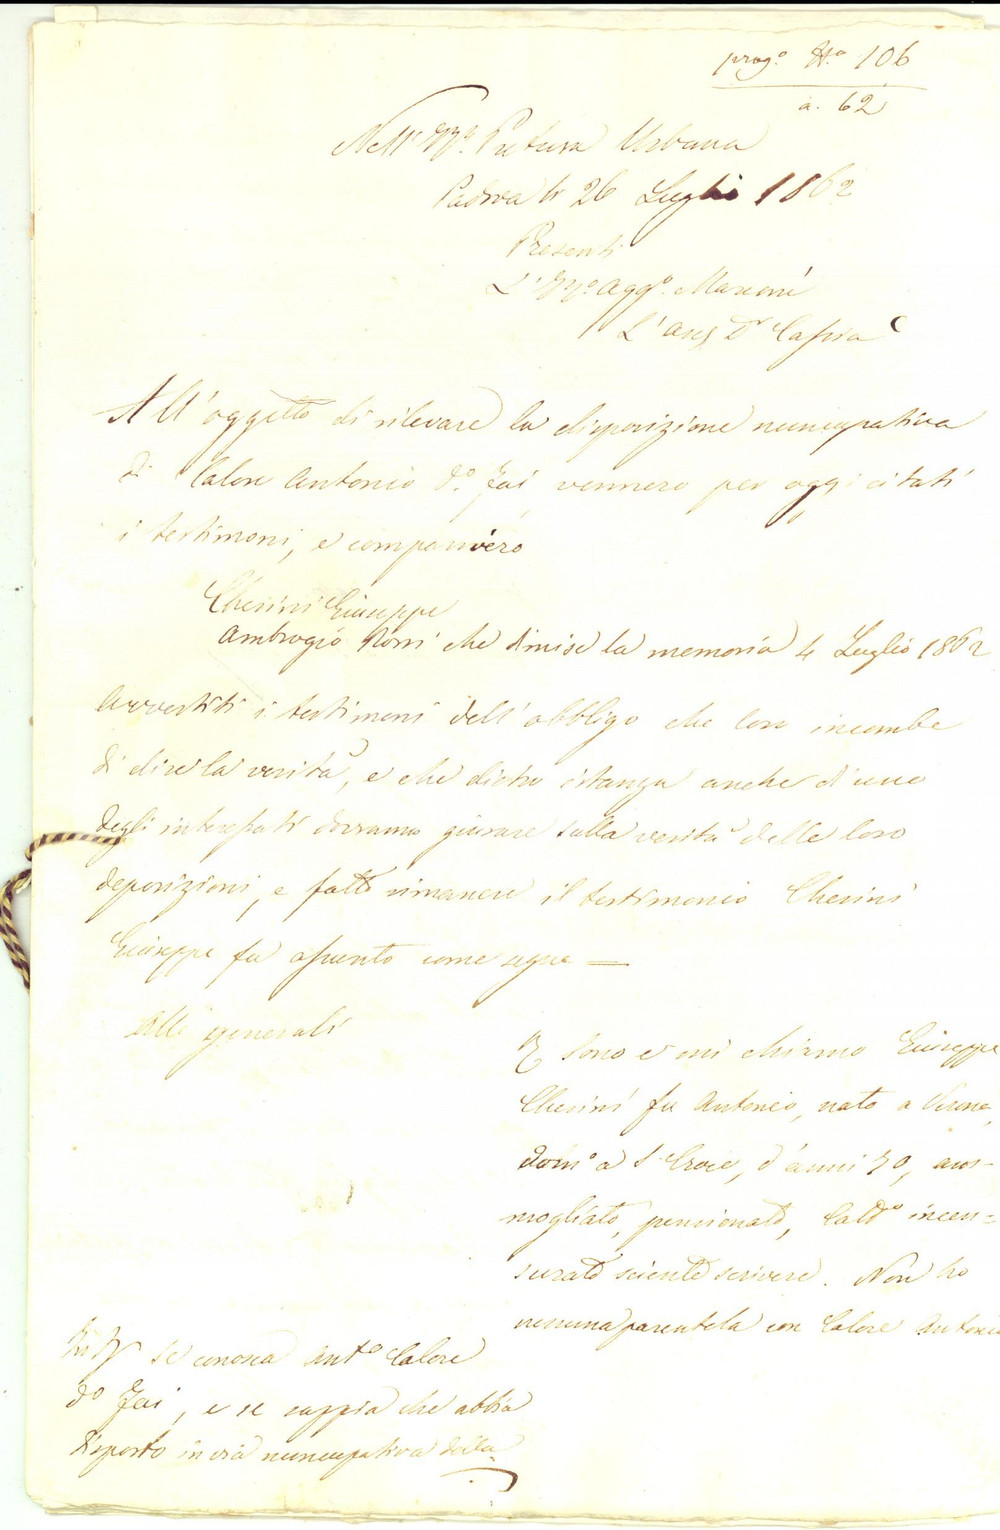 prog.° N.° 106
a. 62
Nell' Pretura Urbana
Padova li 26 Luglio 1862
Presenti
L' Agg.° Marconi
L' Asc. Dr
All'oggetto di rilevare la disposizione nuncupativa
di Calore Antonio d.° Jai vennero per oggi citati
i testimoni, e comparvero
Chesini Giuseppe
Ambrogio Rossi che dimise la memoria 4 Luglio 1862
Avvertiti i testimoni dell'obbligo che loro incombe
di dire la verità, e che dietro istanza anche di uno
degli interessati dovranno giurare sulla verità delle loro
deposizioni, e fatto rimanere il testimonio Chesini
Giuseppe fu assunto come segue =
Alle generali
R Sono e mi chiamo Giuseppe
Chesini fu Antonio, nato a Verona,
dom.° a S. Croce, d'anni 70, am-
mogliato, pensionato, catt.° incen=
surato sciente scrivere. Non ho
nessuna parentela con Calore Antonio
se conosca Ant.° Calore
d.° Jai, e se sappia che abbia
disposto in via nuncupativa della